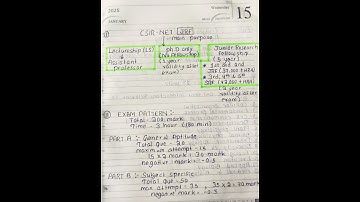 2025
JANUARY
Wednesday
15
CSIR-NET (JRF)
main purpose
Lectureship (LS)
&
Assistant
professor
Ph.D only
(No Fellowship)
(1 year
validity after
exam)
Junior Research
Fellowship
(3 year)
* 1st and 2nd
JRF (37,000 + HRA)
* 3rd, 4th & 5th
(2 year
validity after
exam)
EXAM PATTERN:-
Total - 200 mark
Time - 3 hour (180 min)
PART A :- General Aptitude
Total que = 20
maximum attempt - 15
15 x 2 mark = 30 mark
negative mark = -0.5
PART B :- Subject specific
Total que = 50
max attempt = 35, 35 x 2 = 70 mark
negative mark = -0.5